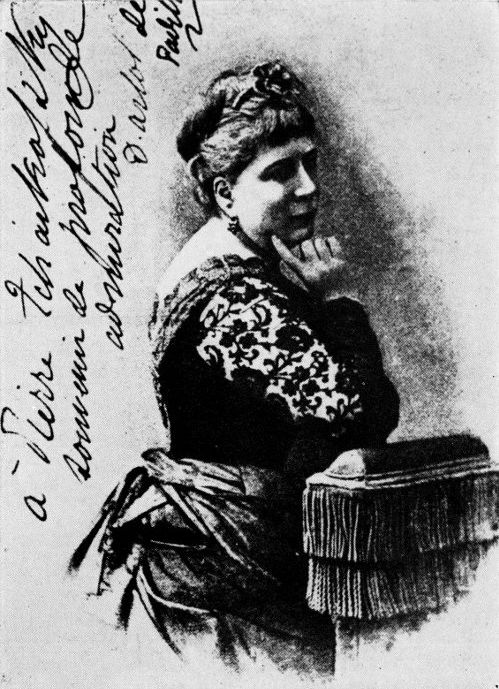 à Pierre Tchaïkofsky
souvenir de profonde
admiration
D. Artot de
Padilla